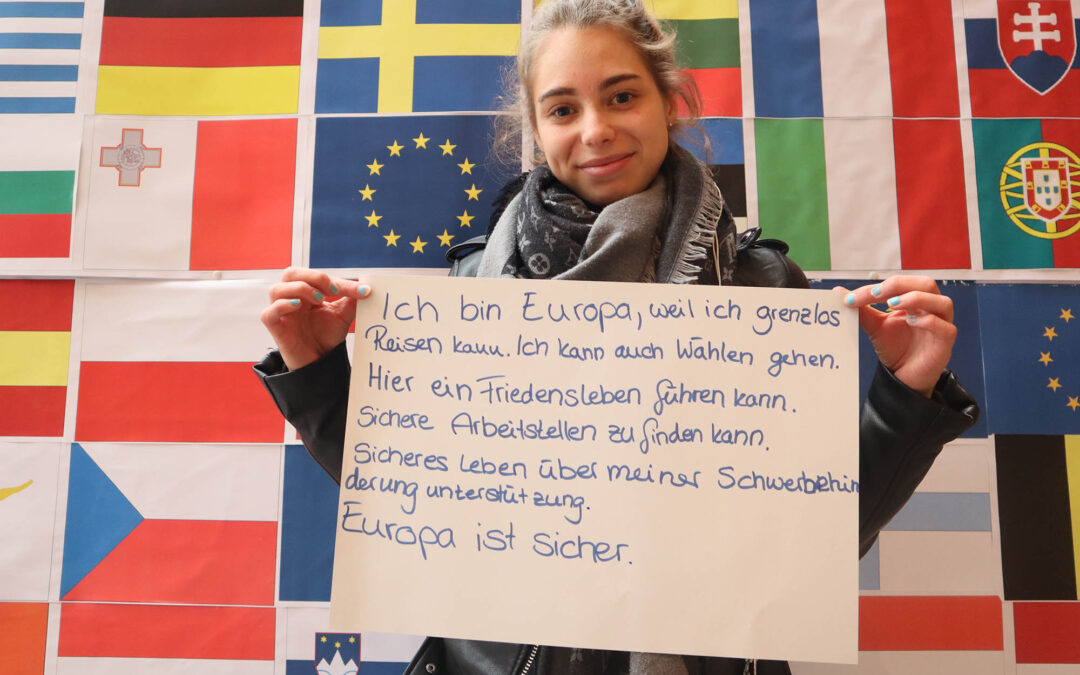 Ich bin Europa, weil ich grenzlos
Reisen kann. Ich kann auch Wählen gehen.
Hier ein Friedensleben führen kann.
Sichere Arbeitstellen zu finden kann.
Sicheres Leben über meiner Schwerbehin
derung unterstützung.
Europa ist sicher.